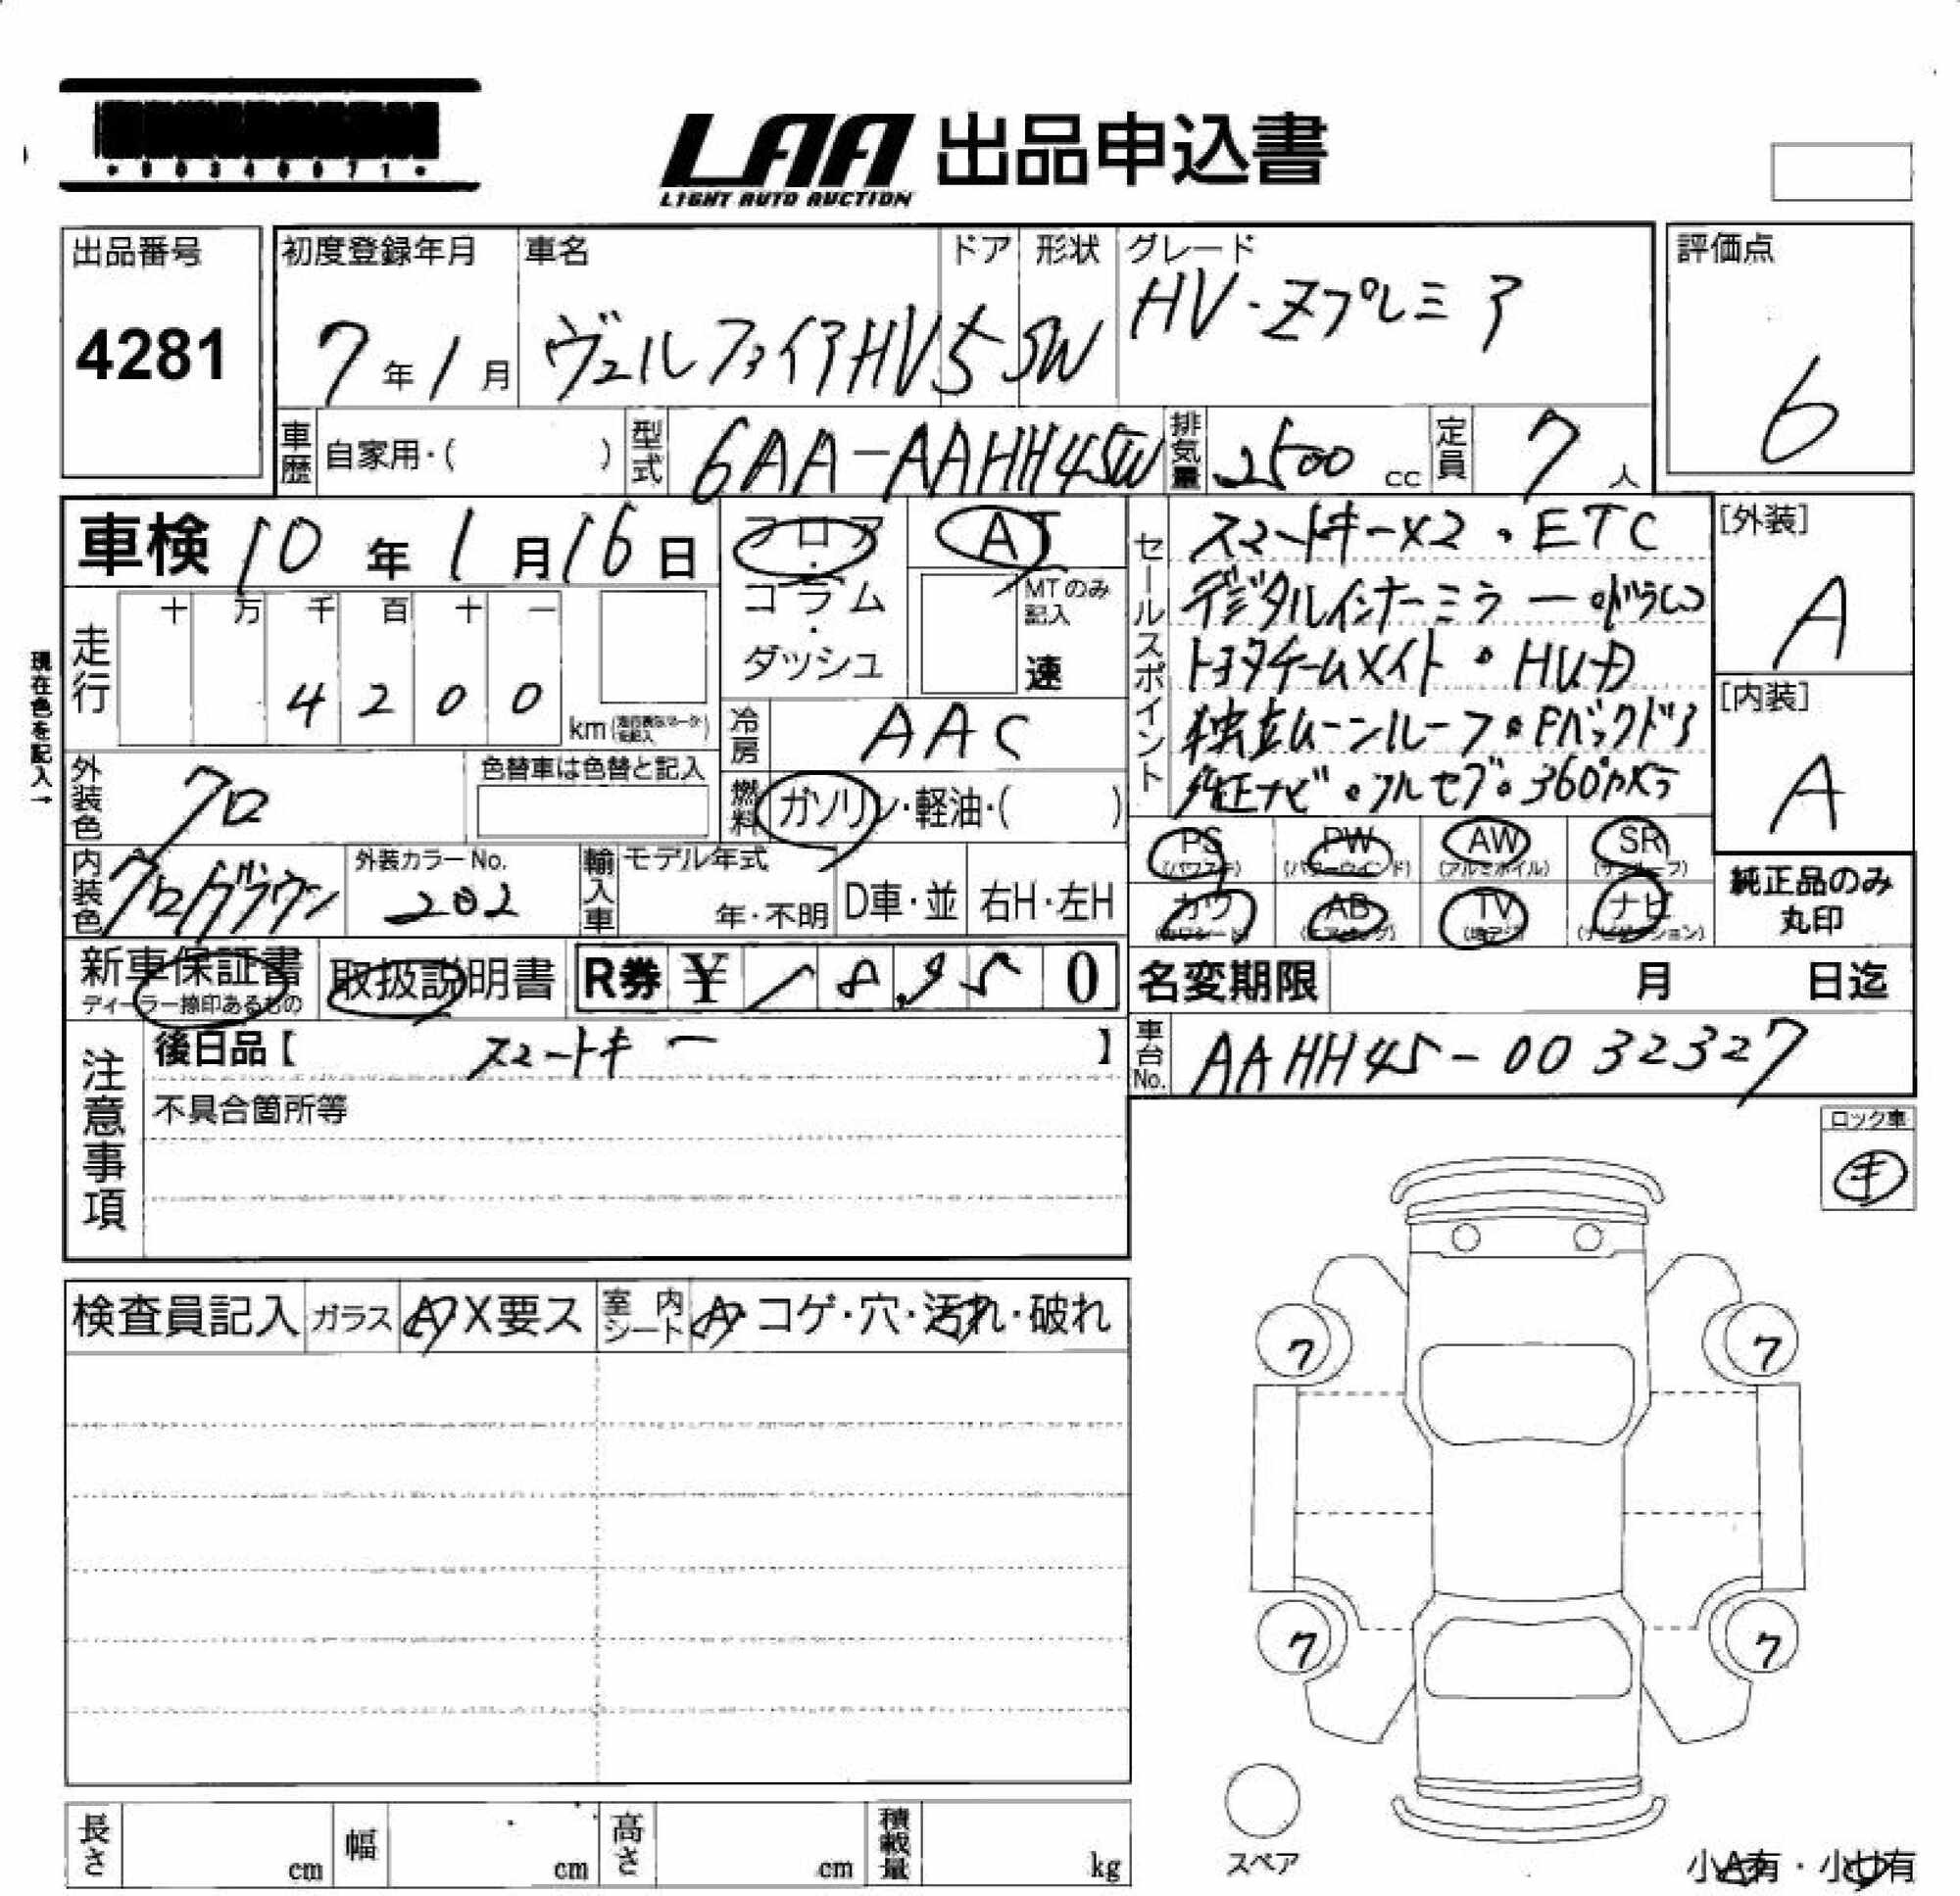 LAA 出品申込書
LIGHT AUTO AUCTION
出品番号
4281
初度登録年月
7年1月
車名
ヴェルファイアHV
ドア
5
形状
SW
グレード
HV・Zプレミア
評価点
6
車歴 自家用・( )
型式 6AA-AAHH45W
排気量 2500 cc
定員 7人
車検 10年1月16日
フロア・コラム・ダッシュ
AT
MTのみ記入
速
セールスポイント
スマートキー×2・ETC
デジタルインナーミラー・ドラレコ
トヨタチームメイト・HUD
独立ムーンルーフ・Pバックドア
純正ナビ・フルセグ・360°カメラ
[外装]
A
[内装]
A
現在色を記入→
走行
十 万 千 百 十 一
4 2 0 0
km
冷房 AAC
外装色 クロ
色替車は色替と記入
燃料 ガソリン・軽油・( )
内装色 クロ/ブラウン
外装カラーNo.
202
輸入車
モデル年式
年・不明
D車・並
右H・左H
PS PW AW SR
(パワステ) (パワーウインド) (アルミホイル) (サンルーフ)
カワ AB TV ナビ
(カワシート) (エアバッグ) (地デジ) (ナビゲーション)
純正品のみ
丸印
新車保証書
ディーラー捺印あるもの
取扱説明書
R券 ¥18,950
名変期限 月 日迄
注意事項
後日品【 スマートキー 】
車台No. AAHH45-0032327
不具合箇所等
ロック車
キ
検査員記入
ガラス A X要ス
室内シート A・コゲ・穴・汚れ・破れ
7 7
7 7
スペア
長さ cm
幅 cm
高さ cm
積載量 kg
小A有・小U有